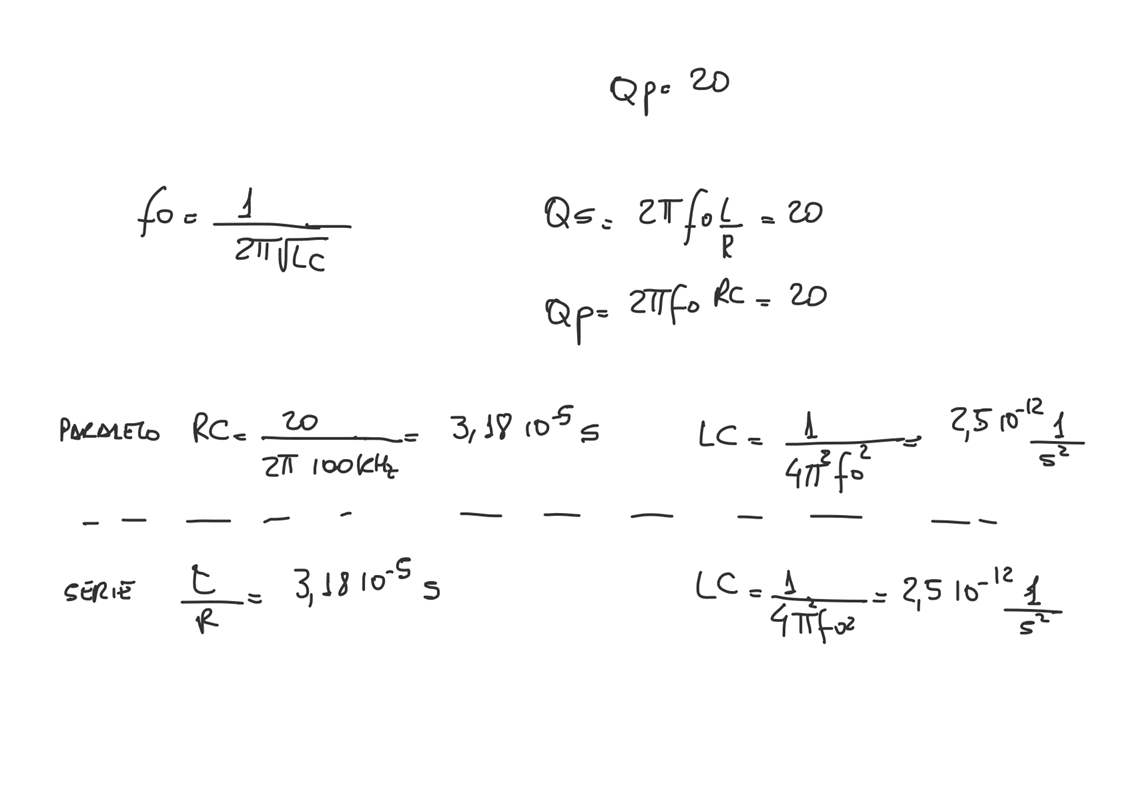 Qp= 20
fo = 1/(2π√LC)
Qs= 2πfo L/R = 20
Qp= 2πfo RC = 20
PARALELO RC= 20/(2π 100kHz) = 3,18 10^-5 s
LC = 1/(4π²fo²) = 2,5 10^-12 1/s²
SÉRIE L/R = 3,18 10^-5 s
LC = 1/(4π²fo²) = 2,5 10^-12 1/s²